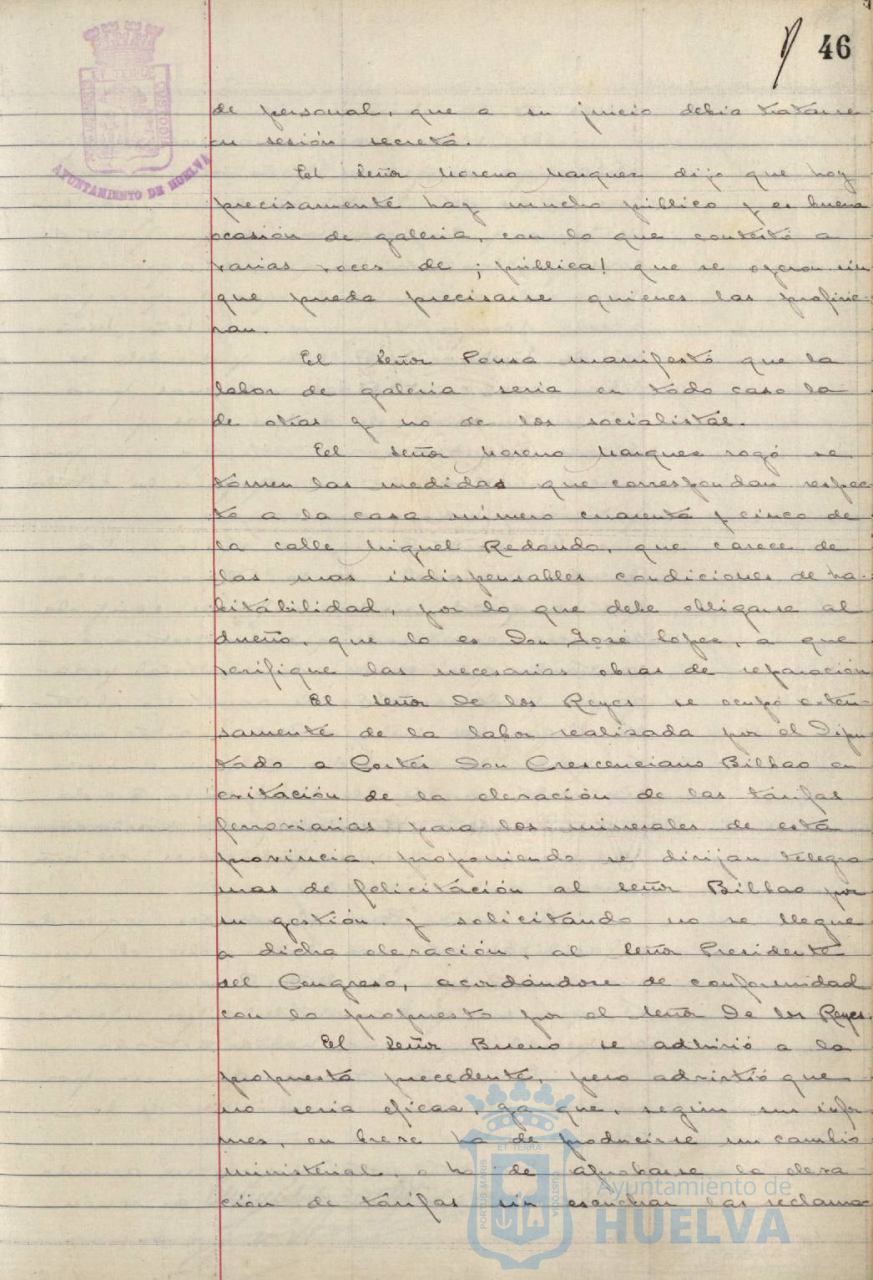 46
AYUNTAMIENTO DE HUELVA
de personal, que a su juicio debia tratarse
en sesión secreta.
El Señor Moreno Marquez dijo que hoy
precisamente hay mucho público y es buena
ocasión de galeria, con lo que contestó a
varias voces de ¡pública! que se oyeron sin
que pueda precisarse quienes las profirie-
ran.
El Señor Ponsa manifestó que la
labor de galeria seria en todo caso la
de otras y no de los socialistas.
El Señor Moreno Marquez rogó se
tomen las medidas que correspondan respec-
to a la casa número cuarenta y cinco de
la calle Miguel Redondo, que carece de
las mas indispensables condiciones de ha-
bitabilidad, por lo que debe obligarse al
dueño, que lo es Don José Lopez, a que
verifique las necesarias obras de reparación
El Señor De los Reyes se ocupó exten-
samente de la labor realizada por el Dipu
tado a Cortes Don Crescenciano Bilbao en
evitación de la elevación de las tarifas
ferroviarias para los minerales de esta
provincia, proponiendo se dirijan telegra
mas de felicitación al Señor Bilbao por
su gestión y solicitando no se llegue
a dicha elevación, al Señor Presidente
del Congreso, acordándose de conformidad
con lo propuesto por el Señor De los Reyes.
El Señor Bueno se adhirió a la
propuesta precedente, pero advirtió que
no seria eficaz, ya que, según sus infor
mes, en breve ha de producirse un cambio
ministerial, o ha de aprobarse la eleva
ción de tarifas sin escuchar las reclama-
PORTUS MARIS ET TERRÆ CUSTODIA
Ayuntamiento de
HUELVA